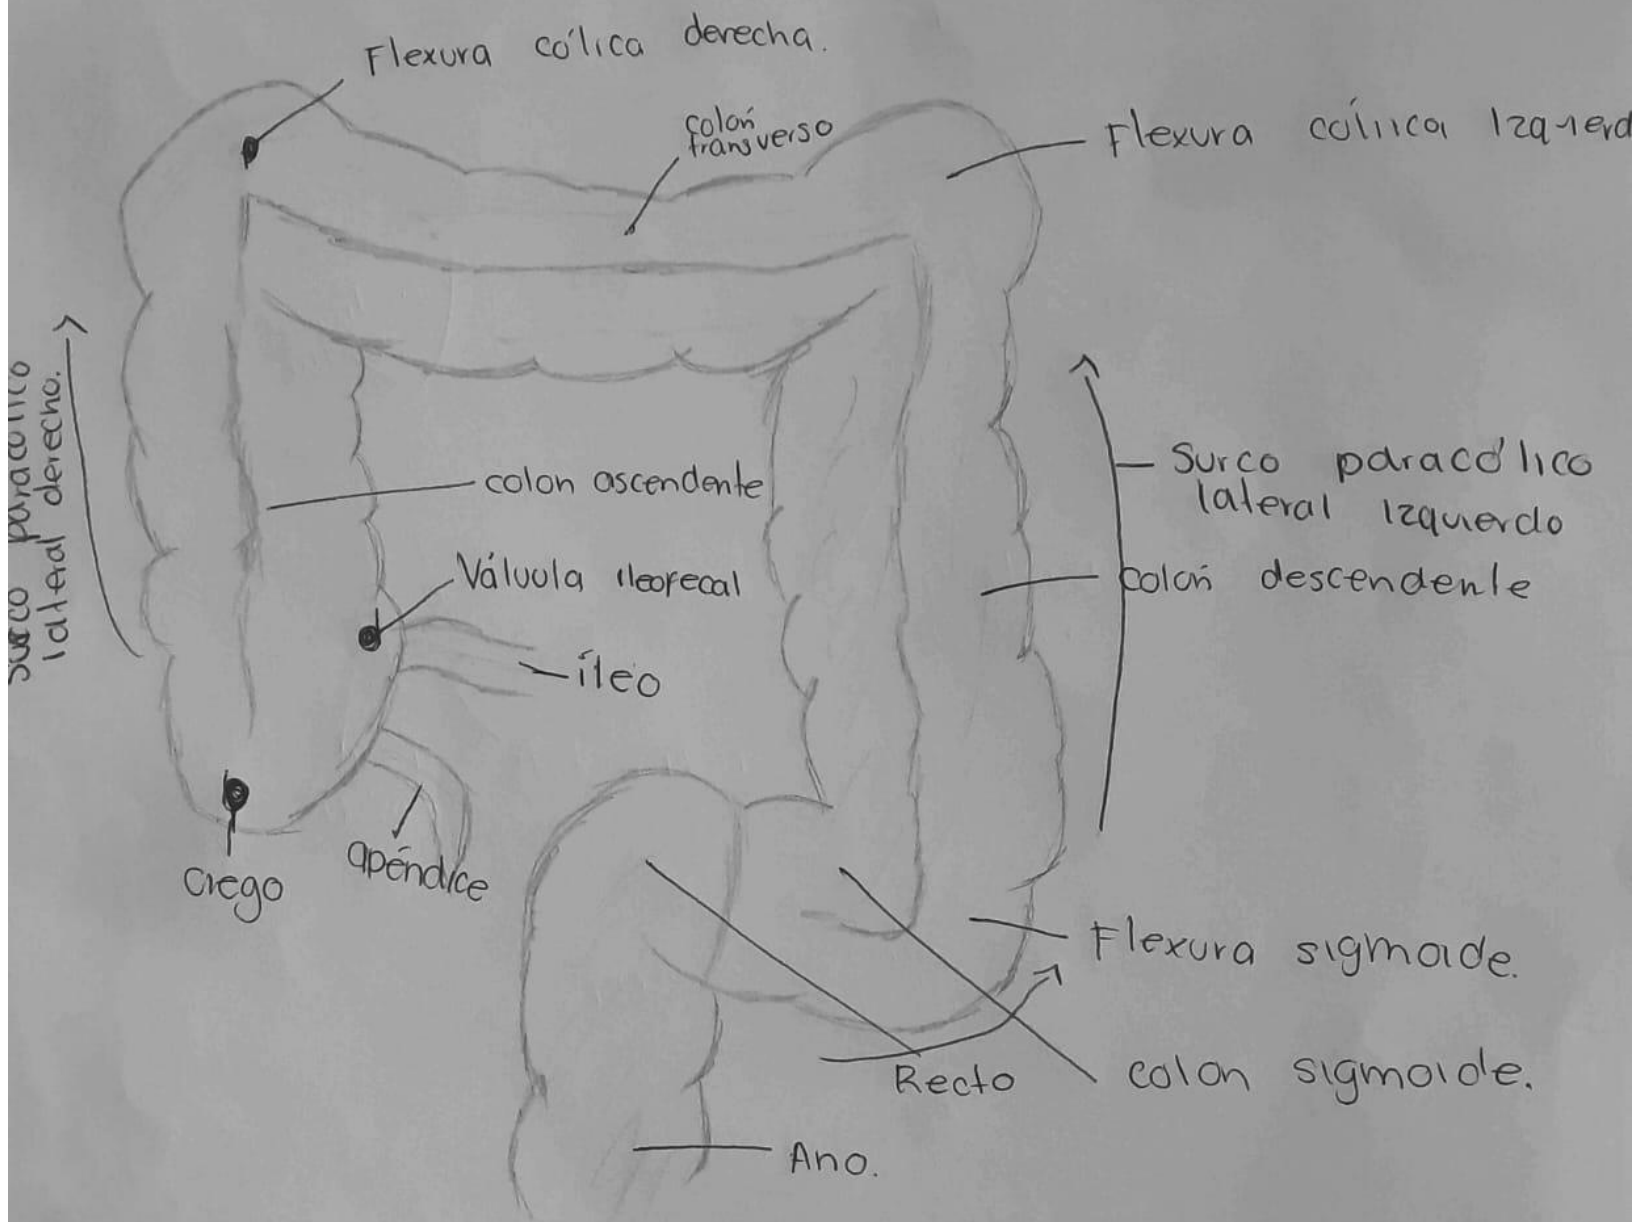 Flexura cólica derecha.
colon
transverso
Flexura cólica Izquierd
Surco paracólico
lateral derecho.
colon ascendente
Surco paracólico
lateral izquierdo
Válvula ileorecal
colon descendente
íleo
ciego
apéndice
Flexura sigmoide.
Recto
colon sigmoide.
Ano.